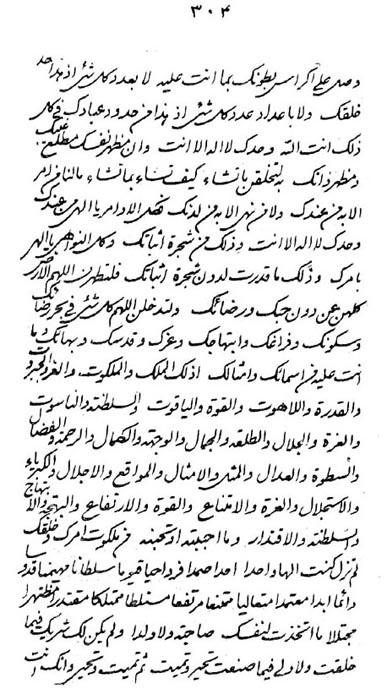 ٣٠٤
وصل على اكراس بطونك بما انت عليه لا بعدد كل شئ اذ هذا حد
خلقك ولا باعداد عدد كل شئ اذ هذا من حدود عبادك فى كل
ذلك انت الله وحدك لا اله الا انت وان مظهر نفسك مطلع غيبك
ومظهر ذاتك به لتخلقن ما تشاء كيف تشاء بما تشاء مالنا من امر
الا به من عندك ولا من نهى الا به من لدنك فكل الاوامر يا الهى من عندك
وحدك لا اله الا انت وذلك من شجرة اثباتك وكل النواهى يا الهى
بامرك وذلك ما قدرت لدون شجرة اثباتك فلتطهرن اللهم الارض
كلهن عن دون حبك ورضائك ولتدخلن اللهم كل شئ فى بحر رضائك
وسكونك وفراغك وابتهاجك وعزك وقدسك وبهائك وما
انت عليه من اسمائك وامثالك اذ لك الملك والملكوت والعز والجبروت
والقدرة واللاهوت والقوة والياقوت والسلطنة والناسوت
والعزة والجلال والطلعة والجمال والوجهة والكمال والرحمة والفضال
والسطوة والعدال والمثل والامثال والمواقع والاجلال والكبرياء
والاستجلال والعزة والامتناع والقوة والارتفاع والبهجة والابتهاج
والسلطنة والاقتدار وما احببته او تحبنه من ملكوت امرك وخلقك
لم تزل كنت الها واحدا احدا صمدا فردا حيا قيوما سلطانا مهيمنا قدوسا
دائما ابدا معتمدا متعاليا ممتنعا مرتفعا متسلطا ممتلكا مقتدرا متظهرا
مجتللا ما اتخذت لنفسك صاحبة ولا ولدا ولم يكن لك شريك فيما
خلقت ولا ولى فيما صنعت تحيى وتميت ثم تميت وتحيى وانك انت